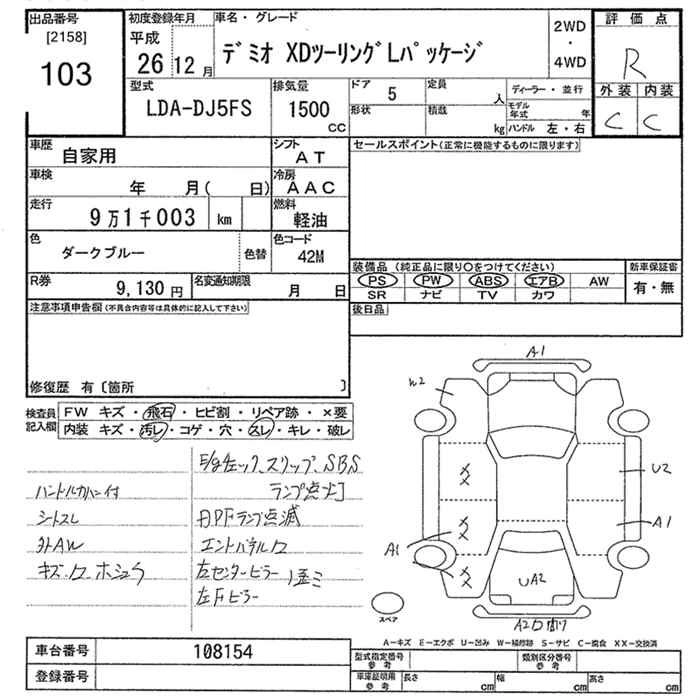 出品番号
[2158]
103
初度登録年月
平成
26 12 月
車名・グレード
デミオ XDツーリングLパッケージ
2WD
・
4WD
評 価 点
R
外装 内装
C C
型式
LDA-DJ5FS
排気量
1500
CC
ドア
5
定員
人
形状
積載
kg
ディーラー・並行
モデル年式
年
ハンドル 左・右
車歴
自家用
シフト
AT
車検
年 月( 日)
冷房
AAC
走行
9万1千003 km
燃料
軽油
色
ダークブルー
色替
色コード
42M
R券
9,130 円
名変通知期限
月 日
セールスポイント(正常に機能するものに限ります)
装備品 (純正品に限り○をつけてください)
新車保証書
PS PW ABS エアB AW
SR ナビ TV カワ
有・無
後日品
注意事項申告欄(不具合内容等は具体的に記入して下さい)
修復歴 有〔箇所 〕
検査員
記入欄
FW キズ・飛石・ヒビ割・リペア跡・×要
内装 キズ・汚レ・コゲ・穴・スレ・キレ・破レ
E/gチェック、スリップ、SBS
ランプ点灯
ハンドルカバー付
シートスレ
DPFランプ点滅
外AW
エンドパネルワ
キズ・ワ・ホシュウ
左センターピラー
左Fピラー
歪ミ
A1
W2
U2
A1
A1
UA2
A2ワ割
XX
XX
XX
スペア
A−キズ E−エクボ U−凹み W−補修跡 S−サビ C−腐食 XX−交換済
車台番号
108154
登録番号
型式指定番号
参考
類別区分番号
参考
車庫証明用
参考
長さ
cm
幅
cm
高さ
cm